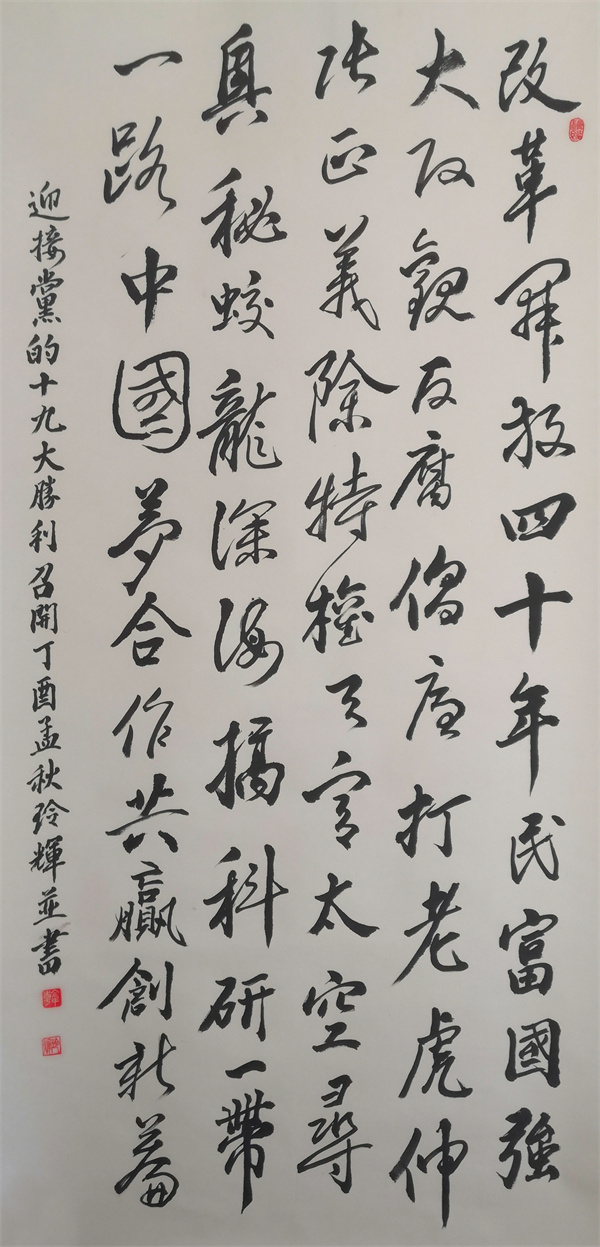 改革開放四十年民富國強
大改觀反腐倡廉打老虎伸
張正義除特權天宫太空尋
奥秘蛟龍深海搞科研一帶
一路中國夢合作共贏創新篇
迎接黨的十九大勝利召開丁酉孟秋玲輝並書